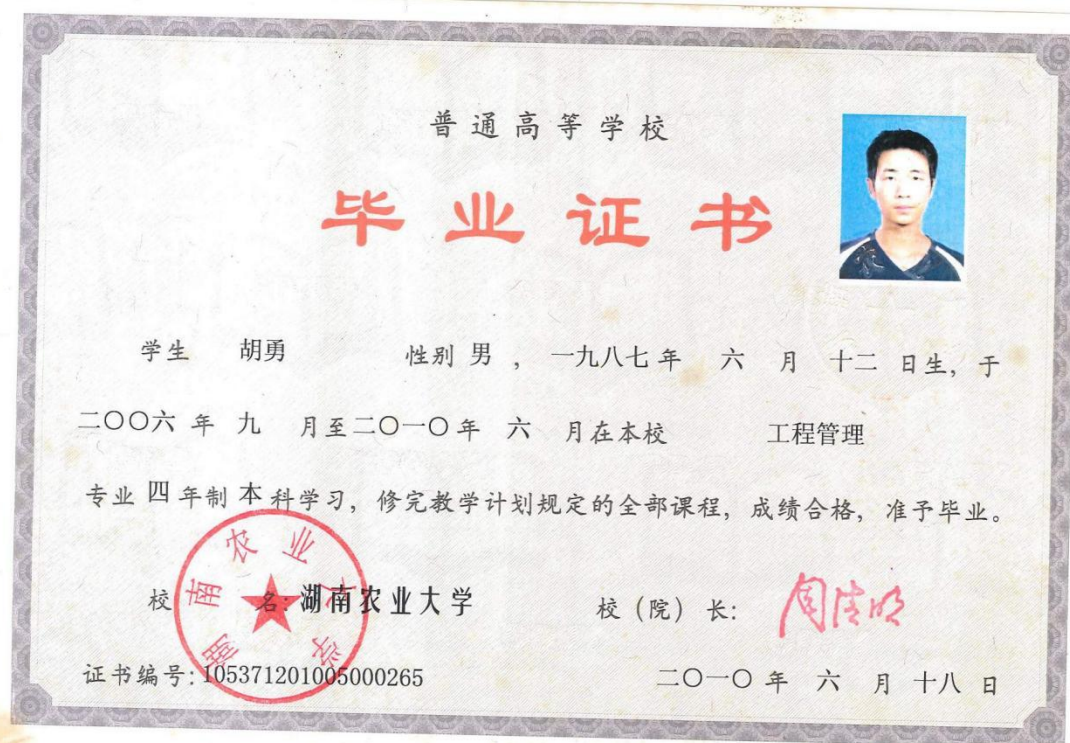 普通高等学校
毕业证书
学生 胡勇 性别 男 , 一九八七 年 六 月 十二 日生, 于
二〇〇六 年 九 月至二〇一〇 年 六 月在本校 工程管理
专业 四 年制 本 科学习, 修完教学计划规定的全部课程, 成绩合格, 准予毕业。
湖南农业大学
校 名: 湖南农业大学 校 (院) 长: 周清明
证书编号: 105371201005000265 二〇一〇 年 六 月 十八 日